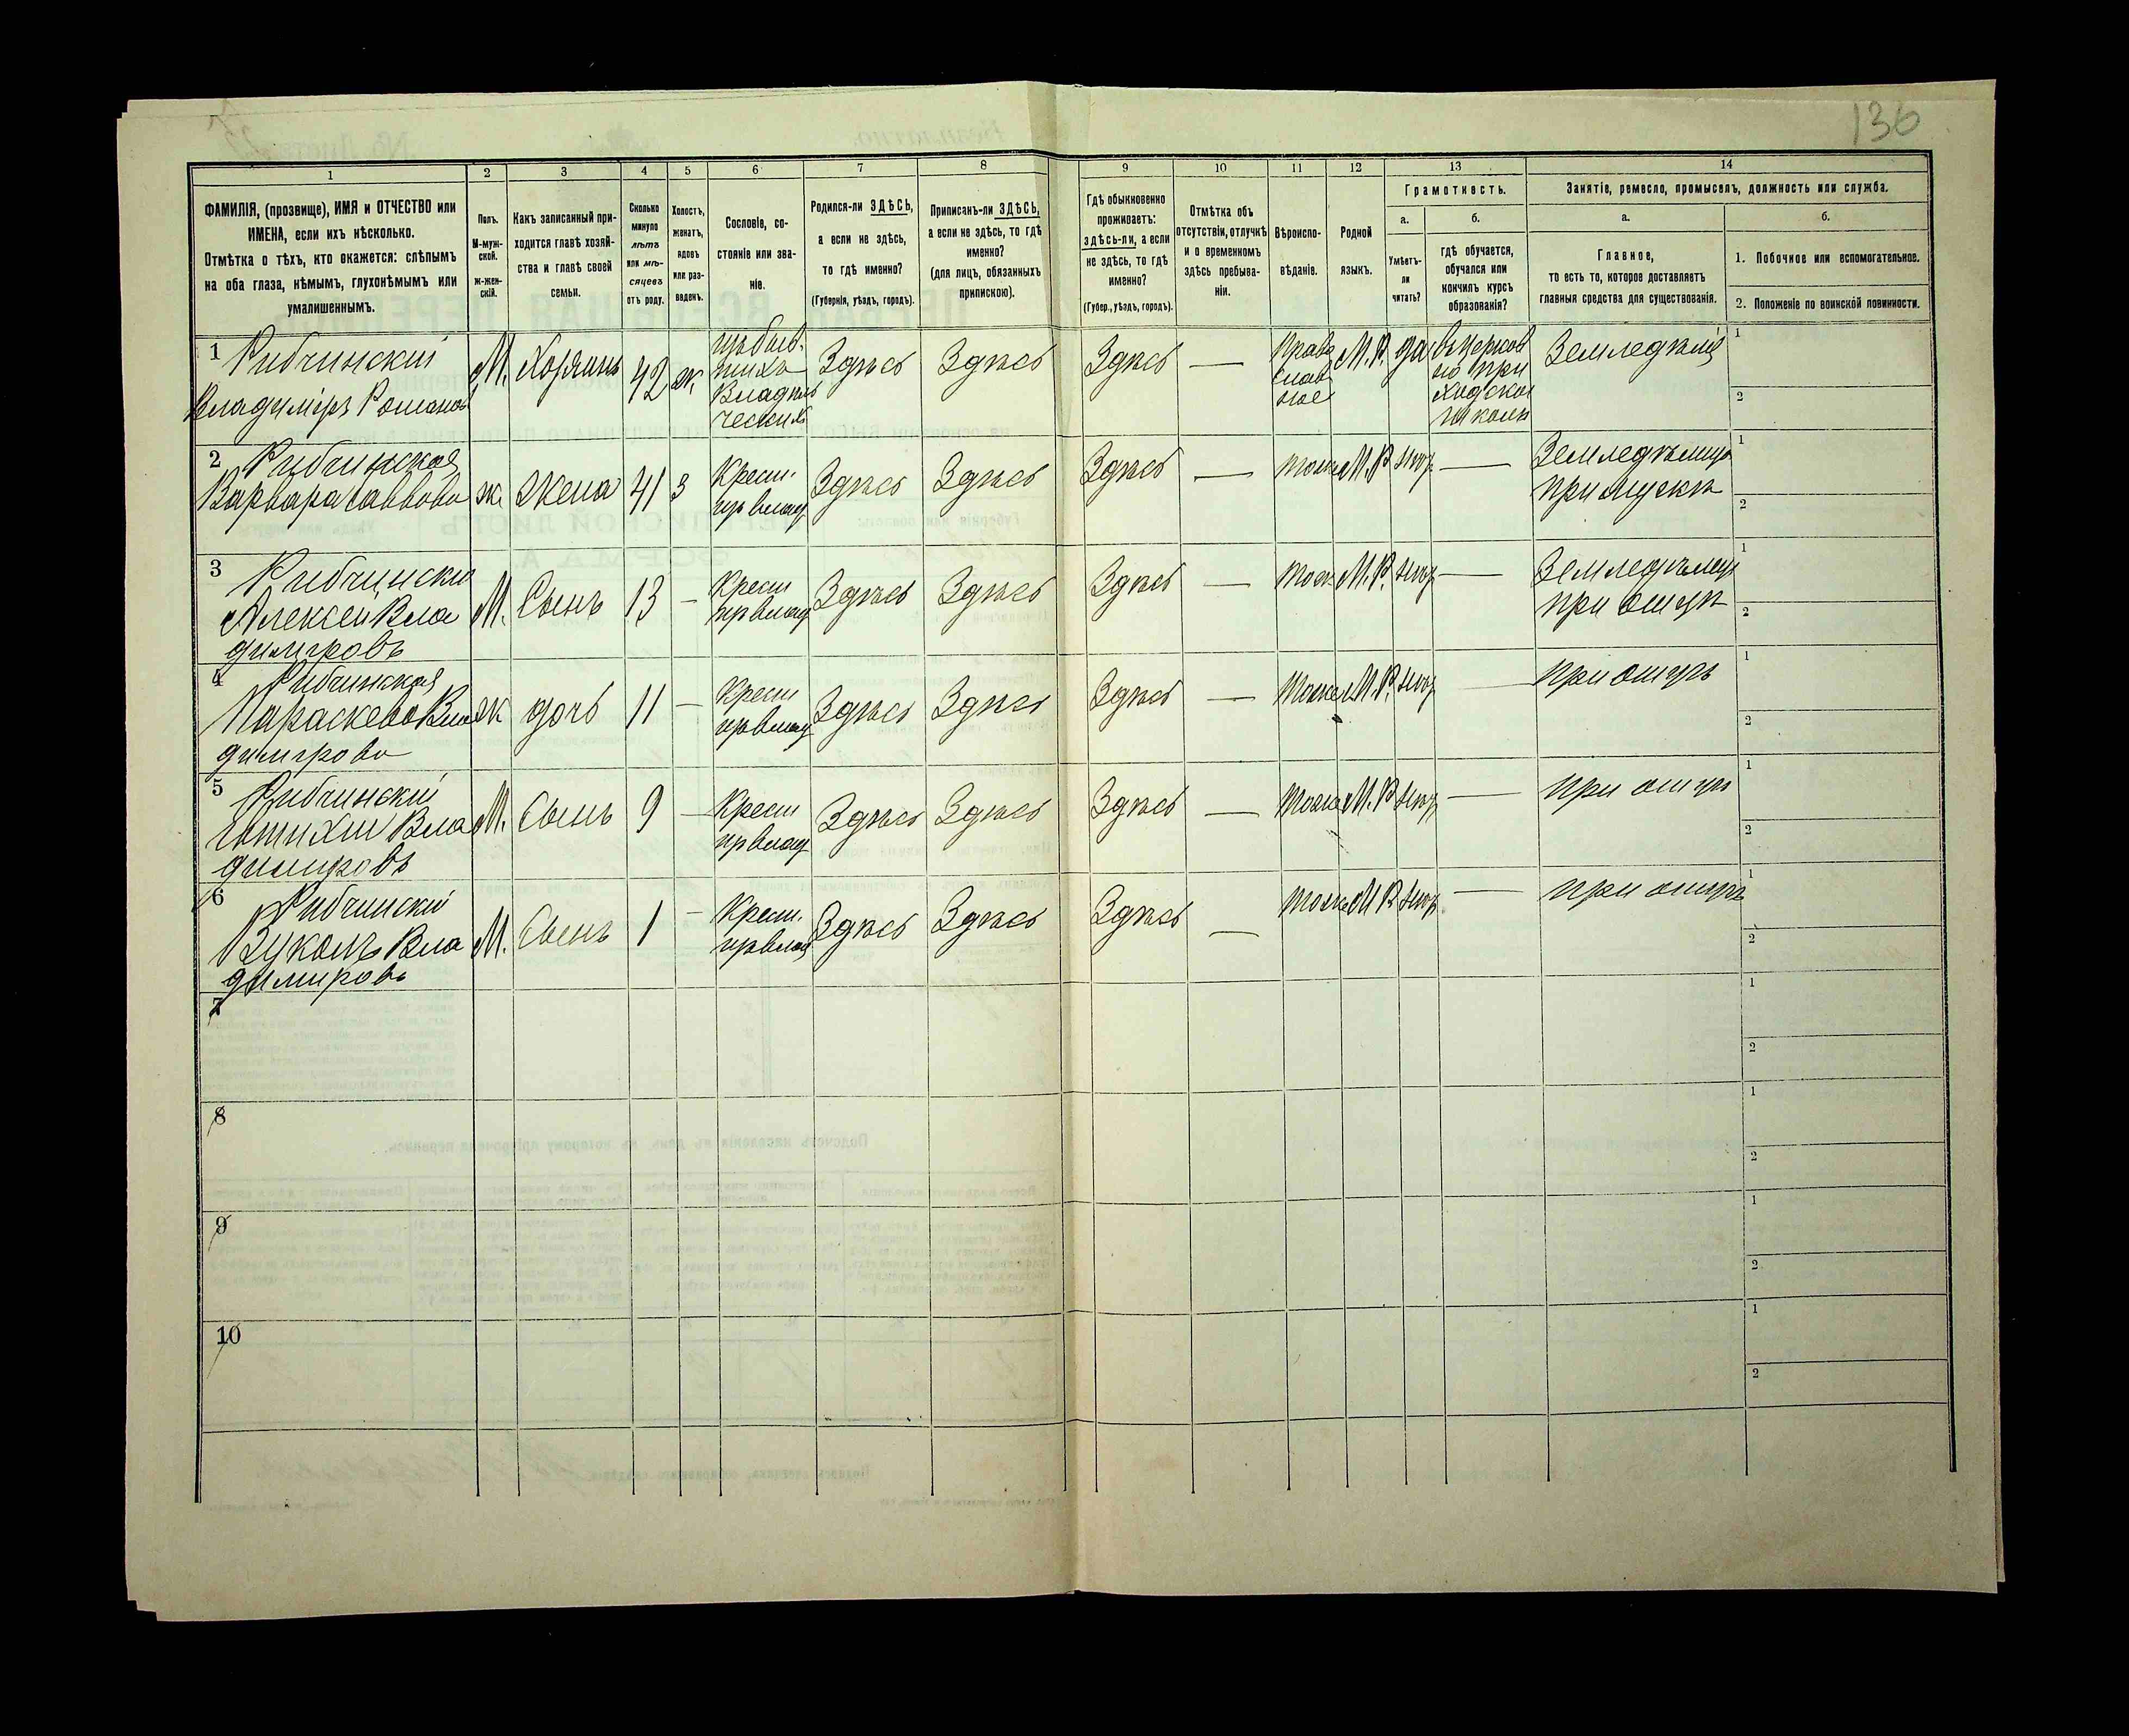 136
1 2 3 4 5 6 7 8 9 10 11 12 13 14
ФАМИЛІЯ, (прозвище), ИМЯ и ОТЧЕСТВО или
ИМЕНА, если ихъ нѣсколько.
Отмѣтка о тѣхъ, кто окажется: слѣпымъ
на оба глаза, нѣмымъ, глухонѣмымъ или
умалишеннымъ.
Полъ.
М-муж-
ской.
Ж-жен-
скій.
Какъ записанный при-
ходится главѣ хозяй-
ства и главѣ своей
семьи.
Сколько
минуло
лѣтъ
или мѣ-
сяцевъ
отъ роду.
Холостъ,
женатъ,
вдовъ
или раз-
веденъ.
Сословіе, со-
стояніе или зва-
ніе.
Родился-ли ЗДѢСЬ,
а если не здѣсь,
то гдѣ именно?
(Губернія, уѣздъ, городъ).
Приписанъ-ли ЗДѢСЬ,
а если не здѣсь, то гдѣ
именно?
(для лицъ, обязанныхъ
припискою).
Гдѣ обыкновенно
проживаетъ:
здѣсь-ли, а если
не здѣсь, то гдѣ
именно?
(Губер., уѣздъ, городъ).
Отмѣтка объ
отсутствіи, отлучкѣ
и о временномъ
здѣсь пребыва-
ніи.
Вѣроиспо-
вѣданіе.
Родной
языкъ.
Грамотность.
а. б.
Умѣетъ-
ли
читать?
гдѣ обучается,
обучался или
кончилъ курсъ
образованія?
Занятіе, ремесло, промыселъ, должность или служба.
а. б.
Главное,
то есть то, которое доставляетъ
главныя средства для существованія.
1. Побочное или вспомогательное.
2. Положеніе по воинской повинности.
1 Рибчинскій
Владиміръ Романовъ
М. Хозяинъ 42 ж.
Владѣль
ческихъ
Здѣсь Здѣсь Здѣсь —
Право
слав
ное
М.Р. да
въ церков
но при
ходской
школѣ
Земледѣліе
1
2
2 Рибчинская
Варвара Саввова
ж жена 41 З
Крест.
Здѣсь Здѣсь Здѣсь — тоже М.Р —
Земледѣлица
при мужѣ
1
2
3 Рибчинскій
Алексей Вла
димировъ
М. Сынъ 13 —
Крест
Здѣсь Здѣсь Здѣсь — тоже М.Р. —
Земледѣлецъ
при отцѣ
1
2
4 Рибчинская
Параскева Вла
димирова
ж дочь 11 —
Крест
Здѣсь Здѣсь Здѣсь — тоже М.Р. — при отцѣ
1
2
5 Рибчинскій
Евтихій Вла
димировъ
М. Сынъ 9 —
Крест
Здѣсь Здѣсь Здѣсь — тоже М.Р — при отцѣ
1
2
6 Рибчинскій
Вуколъ Вла
димировъ
М. Сынъ 1 —
Крест.
Здѣсь Здѣсь Здѣсь — тоже М Р — при отцѣ
1
2
7
1
2
8
1
2
9
1
2
10
1
2